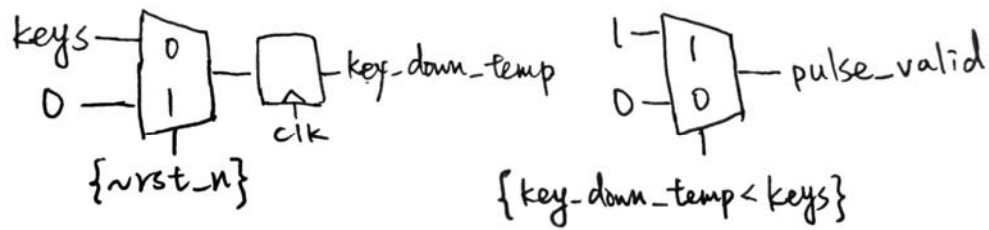 keys
0
0
1
key_down_temp
clk
{~rst_n}
1
0
1
0
pulse_valid
{key_down_temp<keys}